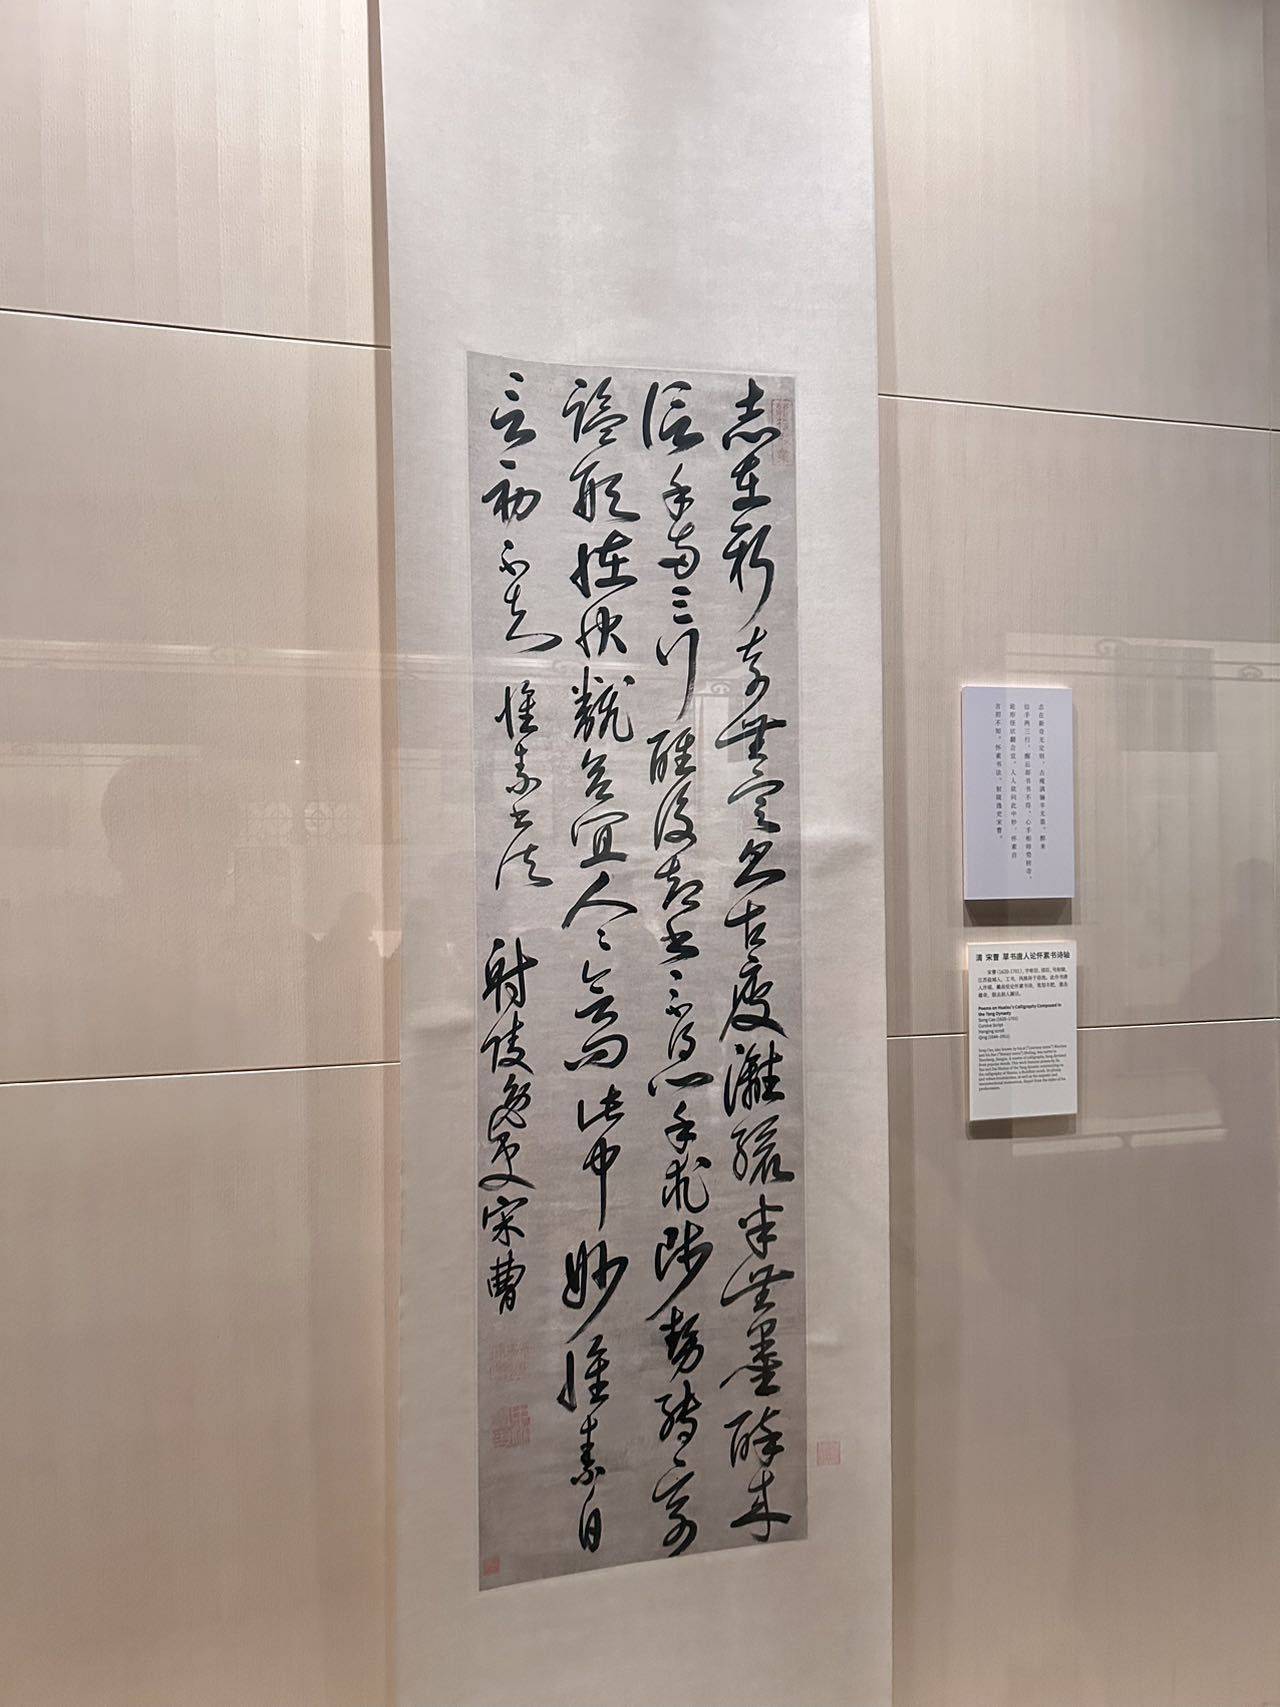 志在新奇無定則古瘦灕纚半無墨醉来
信手兩三行醒後却書不得心手相師勢轉奇
詭形怪狀翻合宜人々欲問此中妙懷素自
言初不知 懷素書法 射陵逸史宋曹
志在新奇无定则，古瘦漓骊半无墨。醉来
信手两三行，醒后却书书不得。心手相师势转奇，
诡形怪状翻合宜。人人欲问此中妙，怀素自
言初不知。怀素书法，射陵逸史宋曹。
清 宋曹 草书唐人论怀素书诗轴
宋曹（1620-1701），字彬臣、邠臣，号射陵，
江苏盐城人。工书，风格异于俗流。此作书唐
人许瑶、戴叔伦论怀素书诗，
Poems on Huaisu's Calligraphy Composed in
the Tang Dynasty
Song Cao (1620–1701)
Cursive Script
Hanging scroll
Qing (1644–1911)